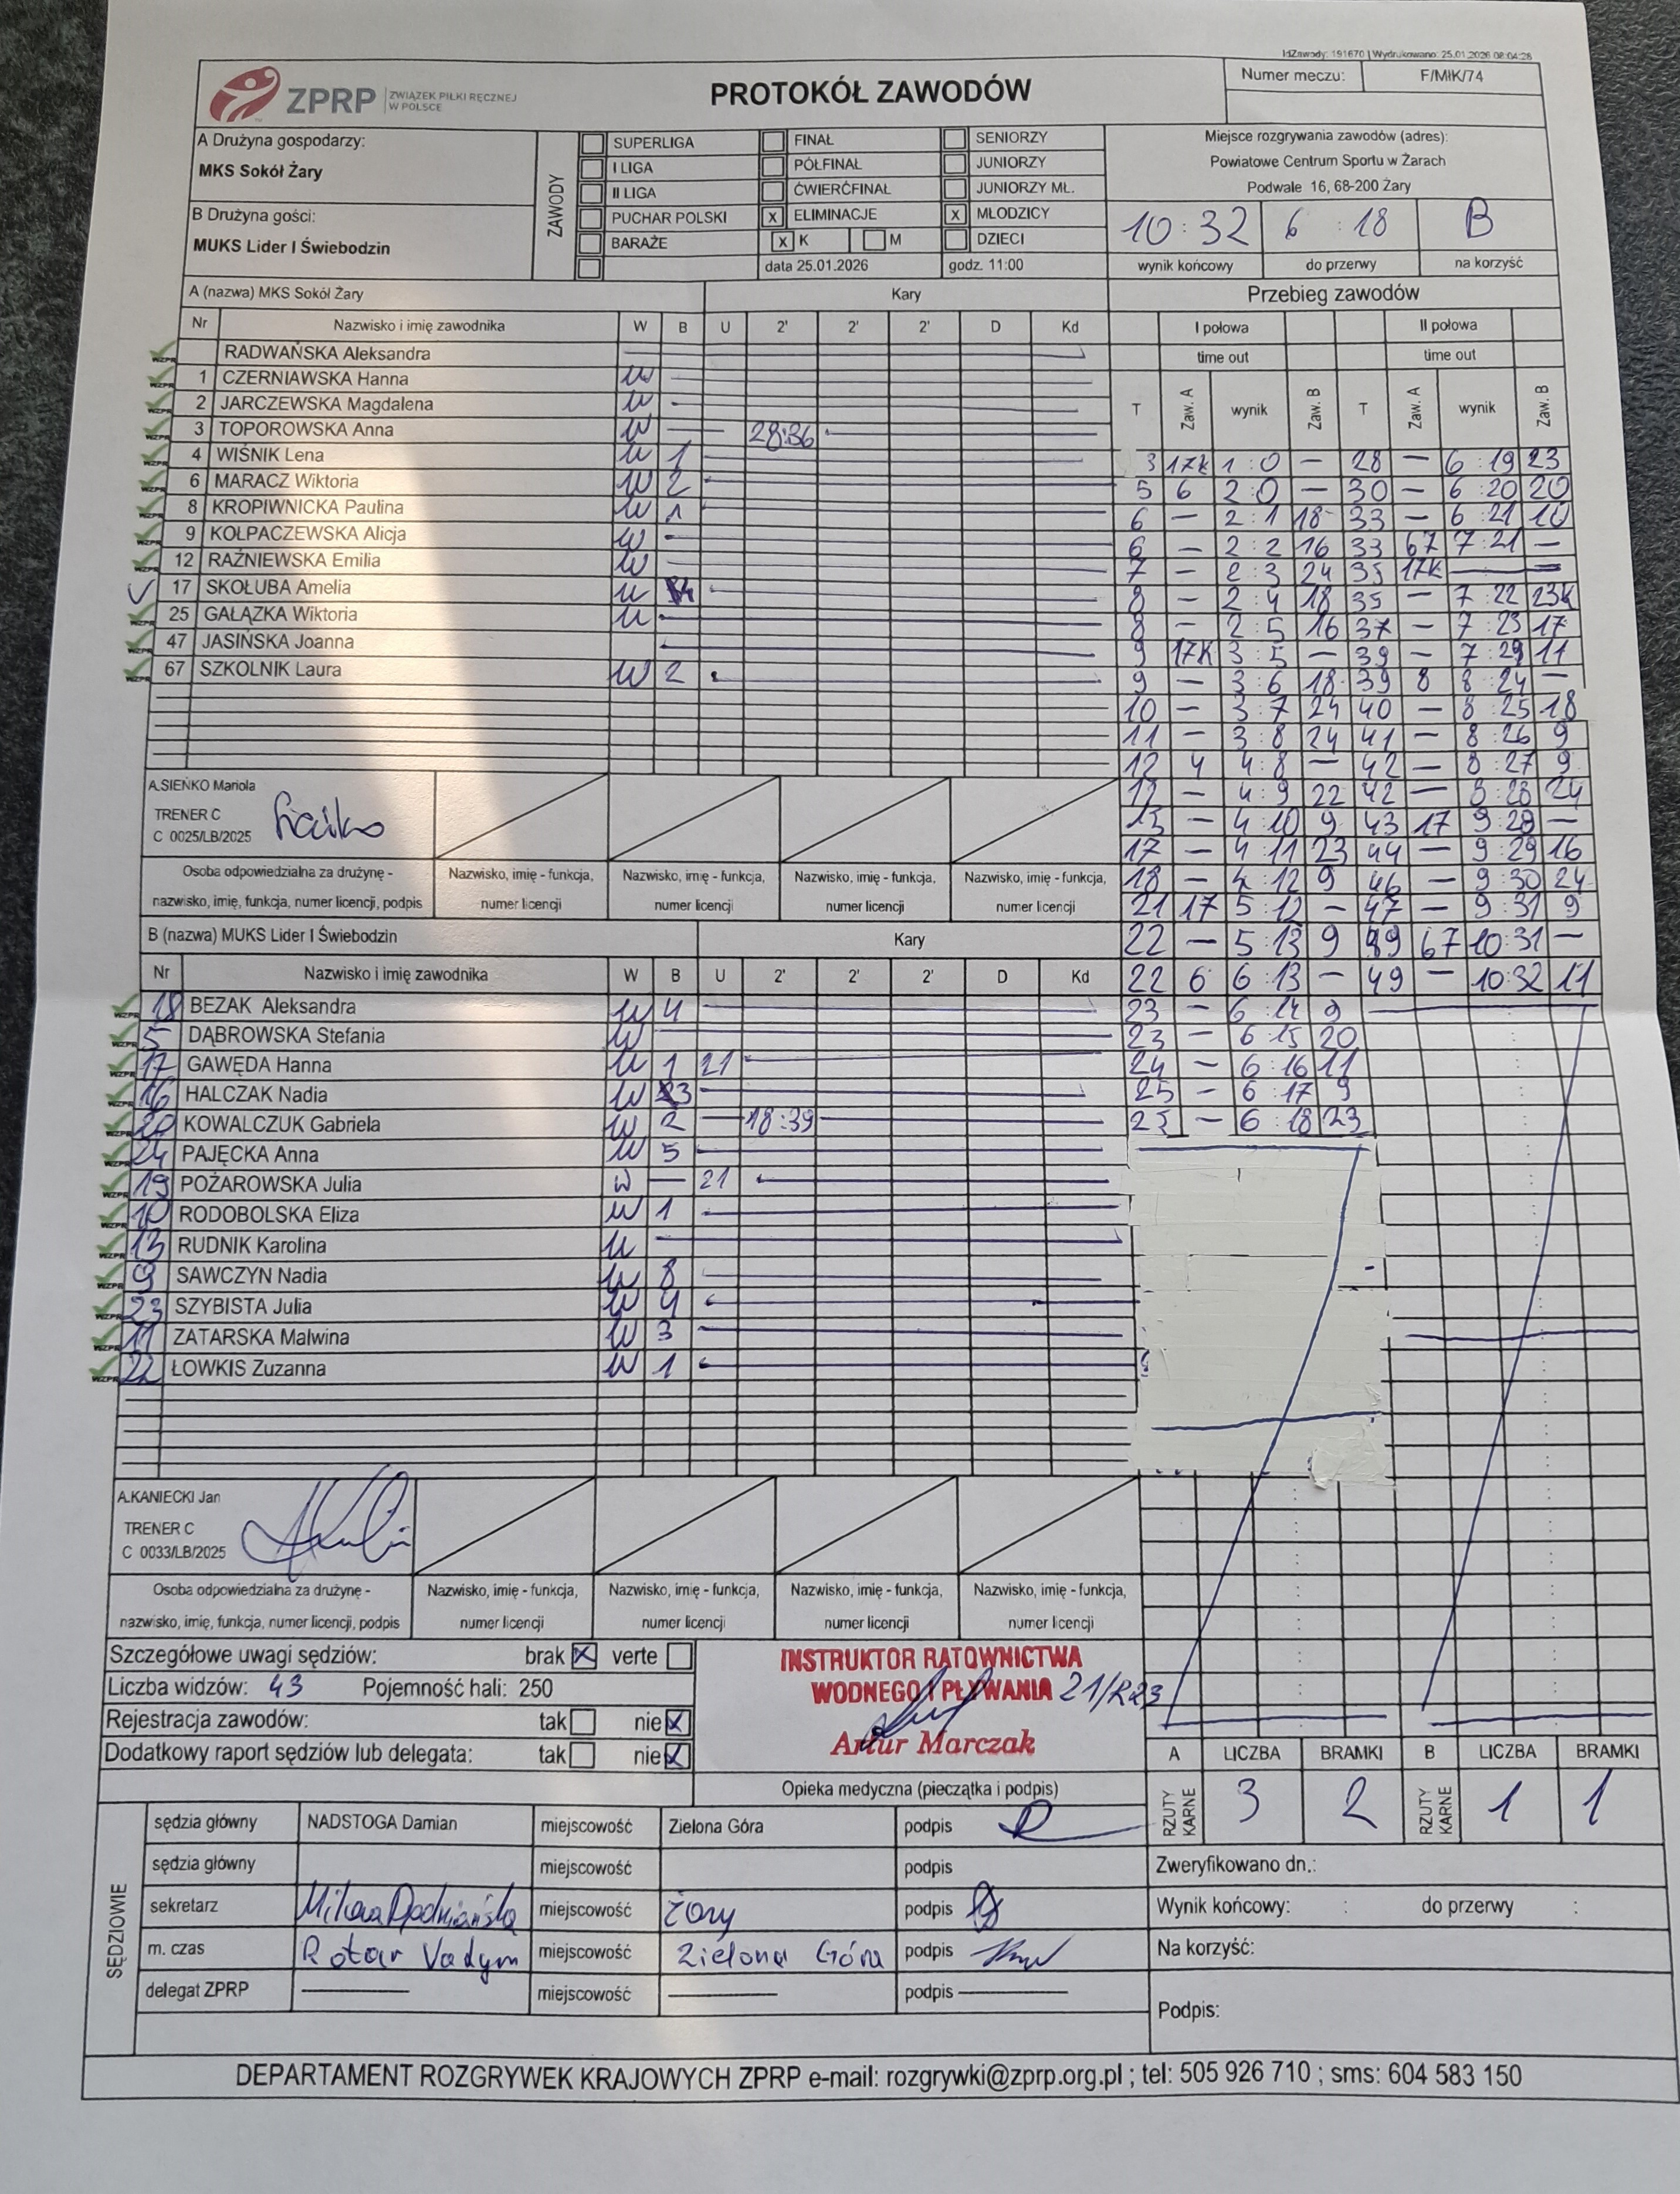 IdZawody: 191670 | Wydrukowano: 25.01.2026 08:04:28
ZPRP ZWIĄZEK PIŁKI RĘCZNEJ W POLSCE
PROTOKÓŁ ZAWODÓW
Numer meczu: F/MłK/74
A Drużyna gospodarzy:
MKS Sokół Żary
B Drużyna gości:
MUKS Lider I Świebodzin
ZAWODY
SUPERLIGA FINAŁ SENIORZY
I LIGA PÓŁFINAŁ JUNIORZY
II LIGA ĆWIERĆFINAŁ JUNIORZY MŁ.
PUCHAR POLSKI x ELIMINACJE x MŁODZICY
BARAŻE x K M DZIECI
data 25.01.2026 godz. 11:00
Miejsce rozgrywania zawodów (adres):
Powiatowe Centrum Sportu w Żarach
Podwale 16, 68-200 Żary
10:32 6:18 B
wynik końcowy do przerwy na korzyść
A (nazwa) MKS Sokół Żary Kary
Nr Nazwisko i imię zawodnika W B U 2' 2' 2' D Kd
RADWAŃSKA Aleksandra
1 CZERNIAWSKA Hanna W
2 JARCZEWSKA Magdalena W
3 TOPOROWSKA Anna W — 28:36
4 WIŚNIK Lena W 1
6 MARACZ Wiktoria W 2
8 KROPIWNICKA Paulina W 1
9 KOŁPACZEWSKA Alicja W
12 RAŹNIEWSKA Emilia W
17 SKOŁUBA Amelia W 4
25 GAŁĄZKA Wiktoria W
47 JASIŃSKA Joanna
67 SZKOLNIK Laura W 2
A.SIEŃKO Mariola
TRENER C
C 0025/LB/2025
Osoba odpowiedzialna za drużynę -
nazwisko, imię, funkcja, numer licencji, podpis
Nazwisko, imię - funkcja, numer licencji
Nazwisko, imię - funkcja, numer licencji
Nazwisko, imię - funkcja, numer licencji
Nazwisko, imię - funkcja, numer licencji
B (nazwa) MUKS Lider I Świebodzin Kary
Nr Nazwisko i imię zawodnika W B U 2' 2' 2' D Kd
18 BEZAK Aleksandra W 4
5 DĄBROWSKA Stefania W
17 GAWĘDA Hanna W 1 21
16 HALCZAK Nadia W 3
20 KOWALCZUK Gabriela W 2 — 18:39
24 PAJĘCKA Anna W 5
19 POŻAROWSKA Julia W — 21
10 RODOBOLSKA Eliza W 1
13 RUDNIK Karolina W
9 SAWCZYN Nadia W 8
23 SZYBISTA Julia W 4
11 ZATARSKA Malwina W 3
22 ŁOWKIS Zuzanna W 1
A.KANIECKI Jan
TRENER C
C 0033/LB/2025
Osoba odpowiedzialna za drużynę -
nazwisko, imię, funkcja, numer licencji, podpis
Nazwisko, imię - funkcja, numer licencji
Nazwisko, imię - funkcja, numer licencji
Nazwisko, imię - funkcja, numer licencji
Nazwisko, imię - funkcja, numer licencji
Przebieg zawodów
I połowa II połowa
time out time out
T Zaw. A wynik Zaw. B T Zaw. A wynik Zaw. B
3 17K 1:0 — 28 — 6:19 23
5 6 2:0 — 30 — 6:20 20
6 — 2:1 18 33 — 6:21 10
6 — 2:2 16 33 67 7:21 —
7 — 2:3 24 35 17K — —
8 — 2:4 18 35 — 7:22 23K
8 — 2:5 16 37 — 7:23 17
9 17K 3:5 — 39 — 7:24 11
9 — 3:6 18 39 8 8:24 —
10 — 3:7 24 40 — 8:25 18
11 — 3:8 24 41 — 8:26 9
12 4 4:8 — 42 — 8:27 9
12 — 4:9 22 42 — 8:28 24
13 — 4:10 9 43 17 9:28 —
17 — 4:11 23 44 — 9:29 16
18 — 4:12 9 46 — 9:30 24
21 17 5:12 — 47 — 9:31 9
22 — 5:13 9 49 67 10:31 —
22 6 6:13 — 49 — 10:32 11
23 — 6:14 9
23 — 6:15 20
24 — 6:16 11
25 — 6:17 9
25 — 6:18 23
Szczegółowe uwagi sędziów: brak x verte
Liczba widzów: 43 Pojemność hali: 250
Rejestracja zawodów: tak nie x
Dodatkowy raport sędziów lub delegata: tak nie x
INSTRUKTOR RATOWNICTWA
WODNEGO I PŁYWANIA
Artur Marczak
Opieka medyczna (pieczątka i podpis)
A LICZBA BRAMKI B LICZBA BRAMKI
RZUTY KARNE 3 2 RZUTY KARNE 1 1
SĘDZIOWIE
sędzia główny NADSTOGA Damian miejscowość Zielona Góra podpis
sędzia główny miejscowość podpis
sekretarz miejscowość Żary podpis
m. czas Rotar Vadym miejscowość Zielona Góra podpis
delegat ZPRP — miejscowość — podpis —
Zweryfikowano dn.:
Wynik końcowy: : do przerwy :
Na korzyść:
Podpis:
DEPARTAMENT ROZGRYWEK KRAJOWYCH ZPRP e-mail: rozgrywki@zprp.org.pl ; tel: 505 926 710 ; sms: 604 583 150